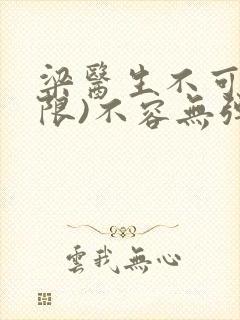 梁醫生不可
限)不容無
雲我無心